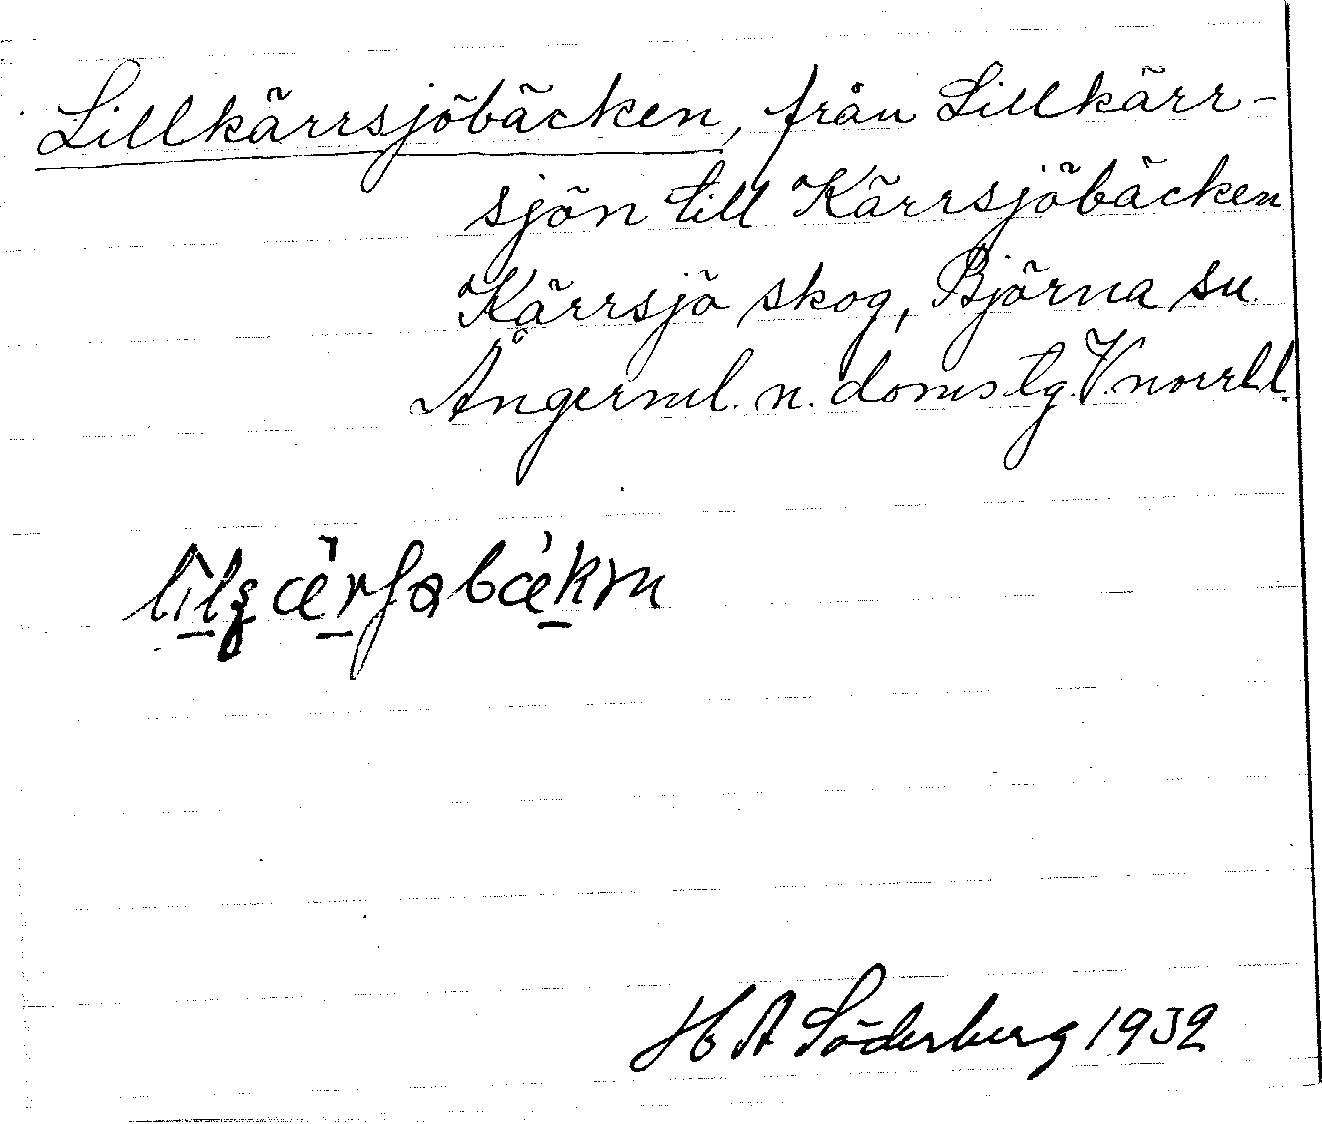 Lillkärrsjöbäcken, från Lillkärr-
sjön till Kärrsjöbäcken
Kärrsjö skog, Björna sn
Ångerml. n. doms tg. Vnorrl.l.
H A Söderberg 1932